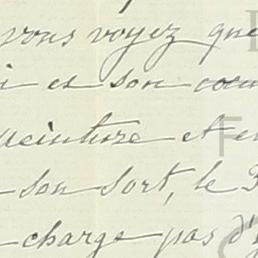 vous voyez que
i et son cœu
peinture et e
son sort, le 3
charge pas d'